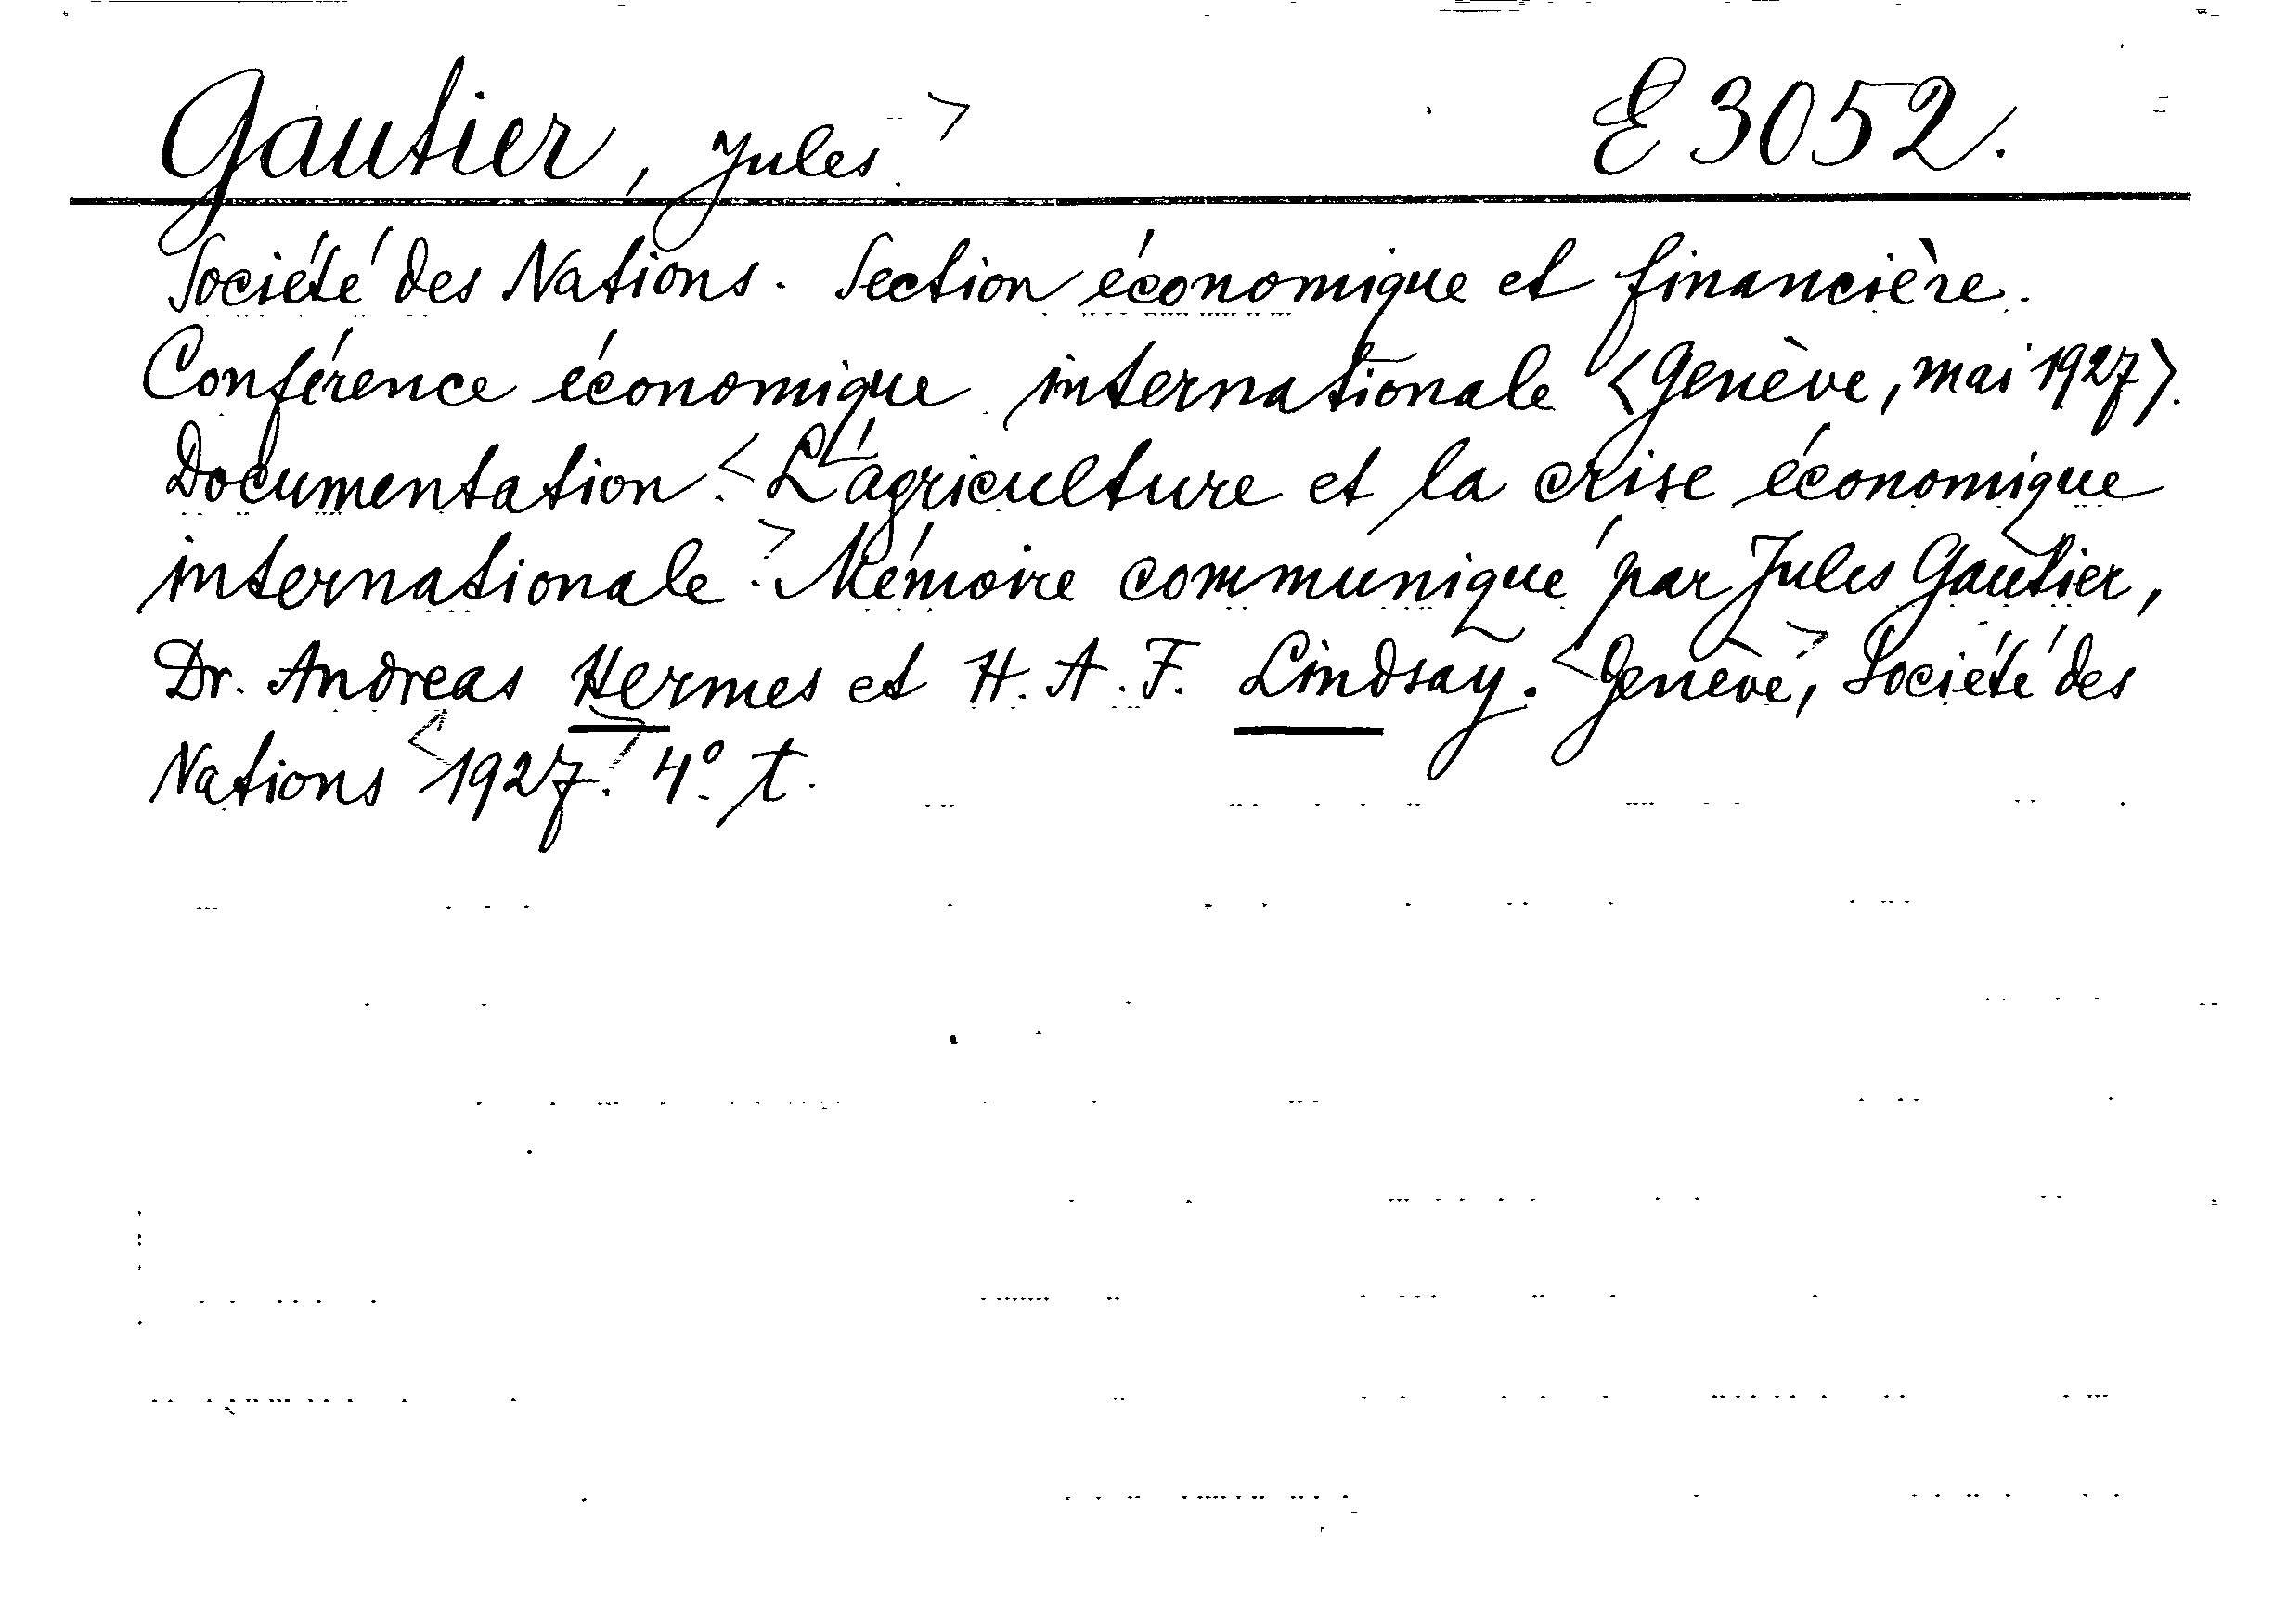 Gautier, Jules. E 3052.
Société des Nations. Section économique et financière.
Conférence économique internationale <Genève, mai 1927>.
Documentation. L'agriculture et la crise économique
internationale. Mémoire communiqué par Jules Gautier,
Dr. Andreas Hermes et H. A. F. Lindsay. Genève, Société des
Nations 1927. 4° t.